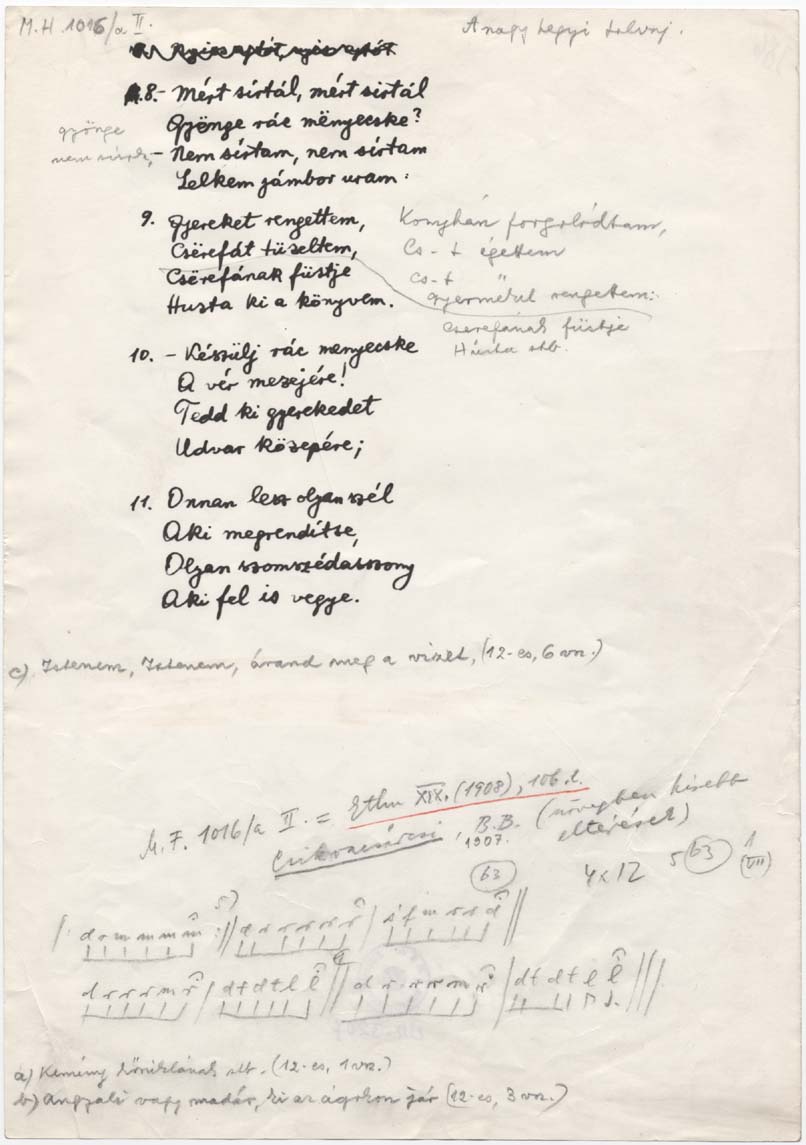 M.H. 1016/a II.
A nagy hegyi tolvaj.
8. - Mért sirtál, mért sirtál
Gyönge rác mënyecske?
gyönge
- Nem sírtam, nem sírtam
Lelkem jámbor uram:
9. Gyereket rengettem,
Csërefát tüzeltem,
Csërefának füstje
Huzta ki a könyvem.
Konyhán forgolódtam,
Cs - t égettem
cs - t "
gyermekül rengettem:
Cserefának füstje
Húzta stb.
10. - Készülj rác menyecske
A vér mezejére!
Tedd ki gyerekedet
Udvar közepére;
11. Onnan lesz olyan szél
Aki megrendítse,
Olyan szomszédasszony
Aki fel is vegye.
c) Istenem, Istenem, áraszd meg a vizet, (12-es, 6 vsz.)
M.F. 1016/a II. = Ethn XIX. (1908), 106. l.
Csikrákosi, B.B. (szövegben kisebb
1907. eltérések)
4x12 5 (b3) 1 (VII)
(b3)
5)
d r m m m m :// d r r r r r / s f m r r d //
d r r r m r / d t d t l l // d r r r m r / d t d t l l ///
a) Kemény kősziklának stb. (12-es, 1 vsz.)
b) Angyali vagy madár, ki az ágokon jár (12-es, 3 vsz.)